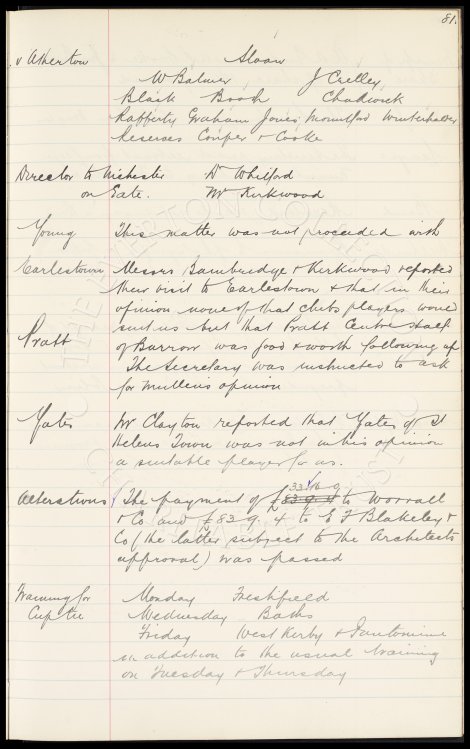 81.
v Atherton Sloan
W Balmer J Crelley
Black Booth Chadwick
Rafferty Graham Jones Mountford Winterhalder
Reserves Cooper & Cooke
Director to Uichester Dr Whitford
on Gate. Mr Kirkwood
Young This matter was not proceeded with
Earlestown Messrs Bainbridge & Kirkwood reported
their visit to Earlestown & that in their
opinion none of that clubs players would
suit us but that Pratt Centre Half
Pratt of Barrow was good & worth following up
The Secretary was instructed to ask
for Mullens opinion
Yates Mr Clayton reported that Yates of St
Helens Town was not in his opinion
a suitable player for us.
Alterations The payment of £ 33 10 9 to Worrall
& Co and £83. 9. 4 to E F Blakeley &
Co (the latter subject to the Architects
approval) was passed
Training for Monday Freshfield
Cup tie Wednesday Baths
Friday West Kirby & Pantomime
in addition to the usual training
on Tuesday & Thursday